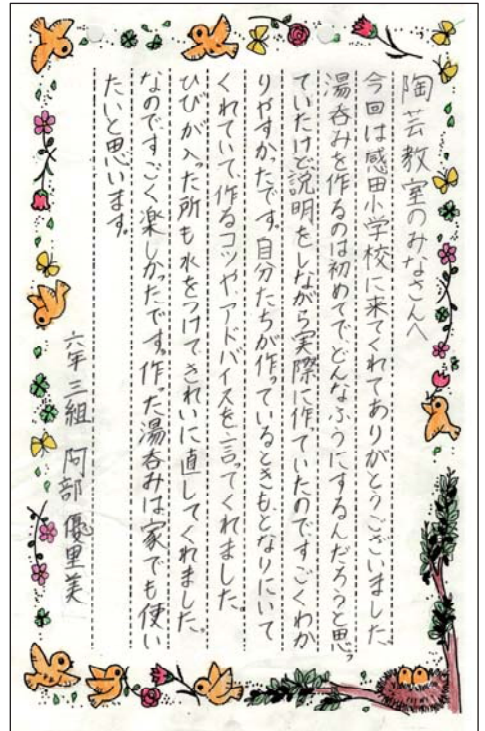 陶芸教室のみなさんへ
今回は感田小学校に来てくれてありがとうございました。
湯呑みを作るのは初めてで、どんなふうにするんだろうと思っ
ていたけど説明をしながら実際に作っていたのですごくわか
りやすかったです。自分たちが作っているときも、となりにいて
くれていて、作るコツや、アドバイスを言ってくれました。
ひびが入った所も水をつけて、きれいに直してくれました。
なのですごく楽しかったです。作った湯呑みは家でも使い
たいと思います。
六年三組 阿部優里美